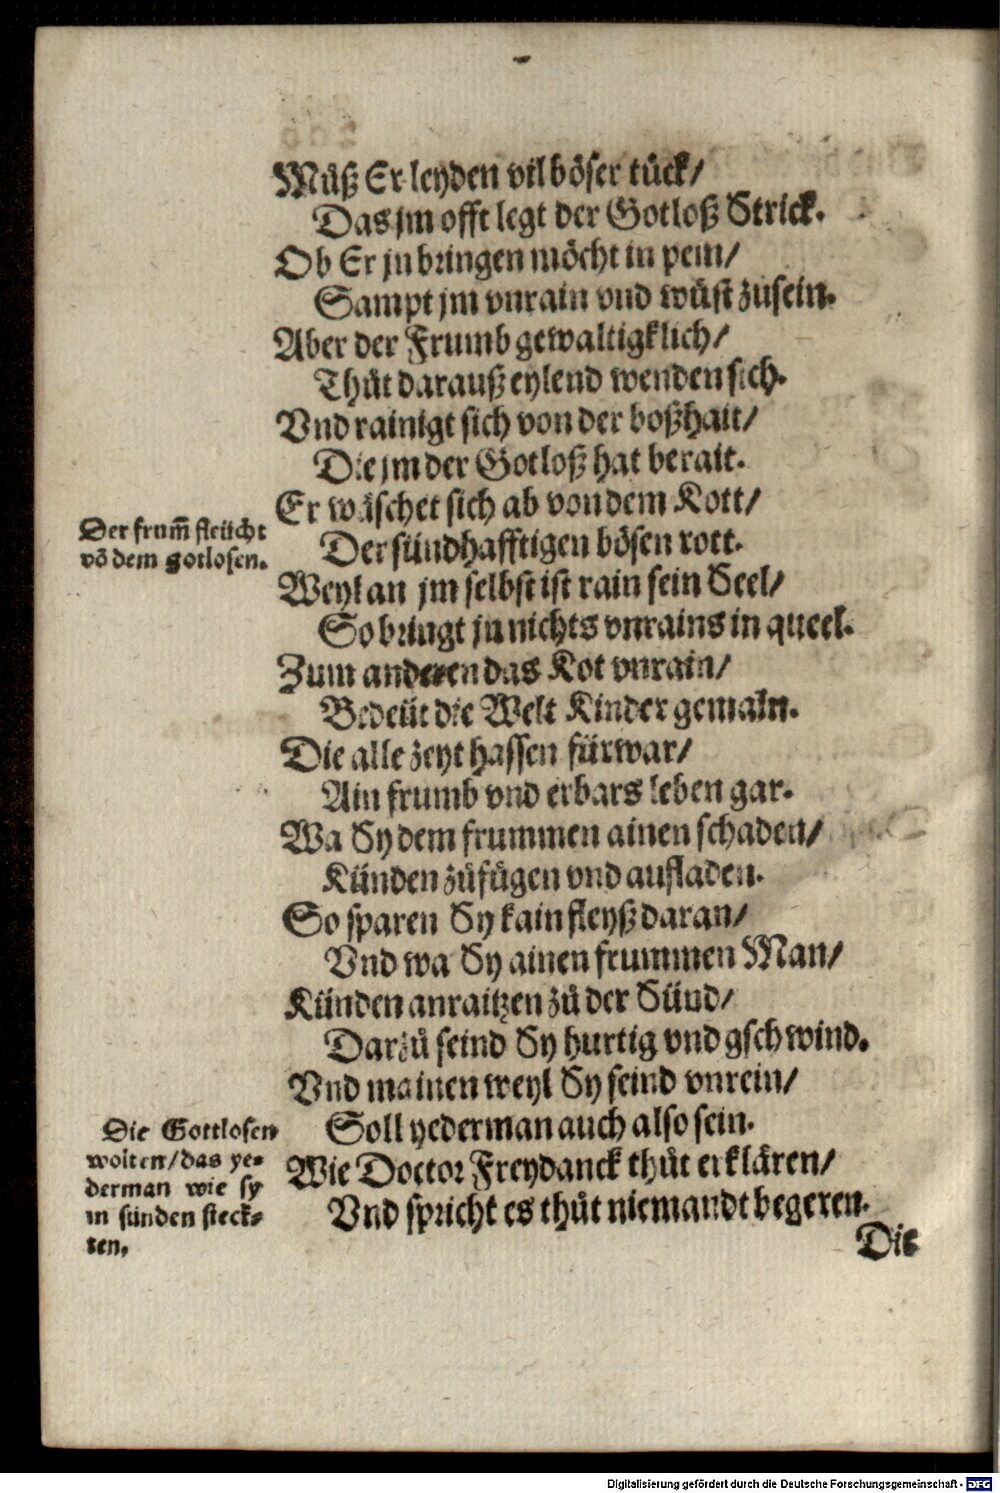 Můß Er leyden vil böser tück/
Das jm offt legt der Gotloß Strick.
Ob Er jn bringen möcht in pein/
Sampt jm vnrain vnd wůst zusein.
Aber der Frumb gewaltigklich/
Thůt darauß eylend wenden sich.
Vnd rainigt sich von der boßhait/
Die jm der Gotloß hat berait.
Er wäschet sich ab von dem Kott/
Der sündhafftigen bösen rott.
Der frum̃ fleücht
võ dem gotlosen.
Weyl an jm selbst ist rain sein Seel/
So bringt jn nichts vnrains in queel.
Zum anderen das Kot vnrain/
Bedeüt die Welt Kinder gemain.
Die alle zeyt hassen fürwar/
Ain frumb vnd erbars leben gar.
Wa Sy dem frummen ainen schaden/
Künden zůfůgen vnd aufladen.
So sparen Sy kain fleyß daran/
Vnd wa Sy ainen frummen Man/
Künden anraitzen zů der Sünd/
Darzů seind Sy hurtig vnd gschwind.
Vnd mainen weyl Sy seind vnrein/
Soll yederman auch also sein.
Wie Doctor Freydanck thůt erklären/
Vnd spricht es thůt niemandt begeren.
Die Gottlosen
wolten/das ye-
derman wie sy
in sünden steck-
ten.
Die
Digitalisierung gefördert durch die Deutsche Forschungsgemeinschaft - DFG